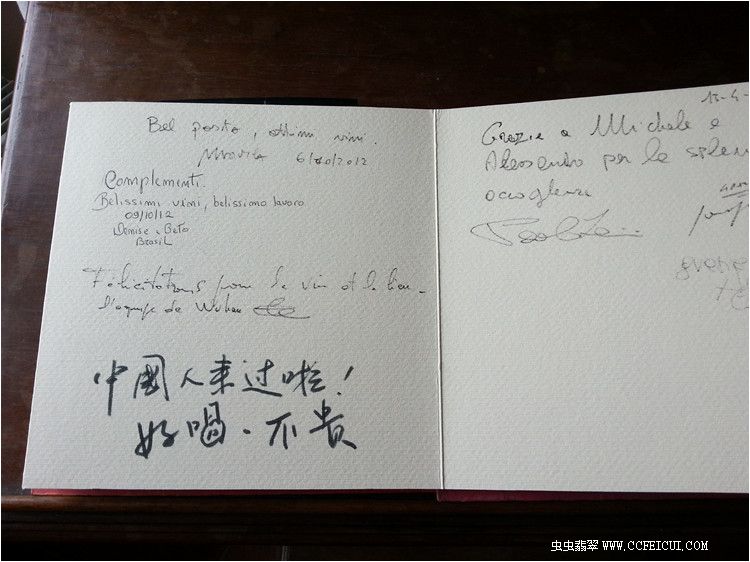 Bel posto, ottimi vini.
6/10/2012
Complementi.
Belissimi vini, belissimo lavoro
09/10/12
Denise e Beto
Brasil
Félicitations pour le vin et le lieu
l'équipe de Wuhan
中國人来过啦！
好喝·不贵
13-4-
Grazie a Michele e
Alessandro per la splen
accoglienza
虫虫翡翠 WWW.CCFEICUI.COM